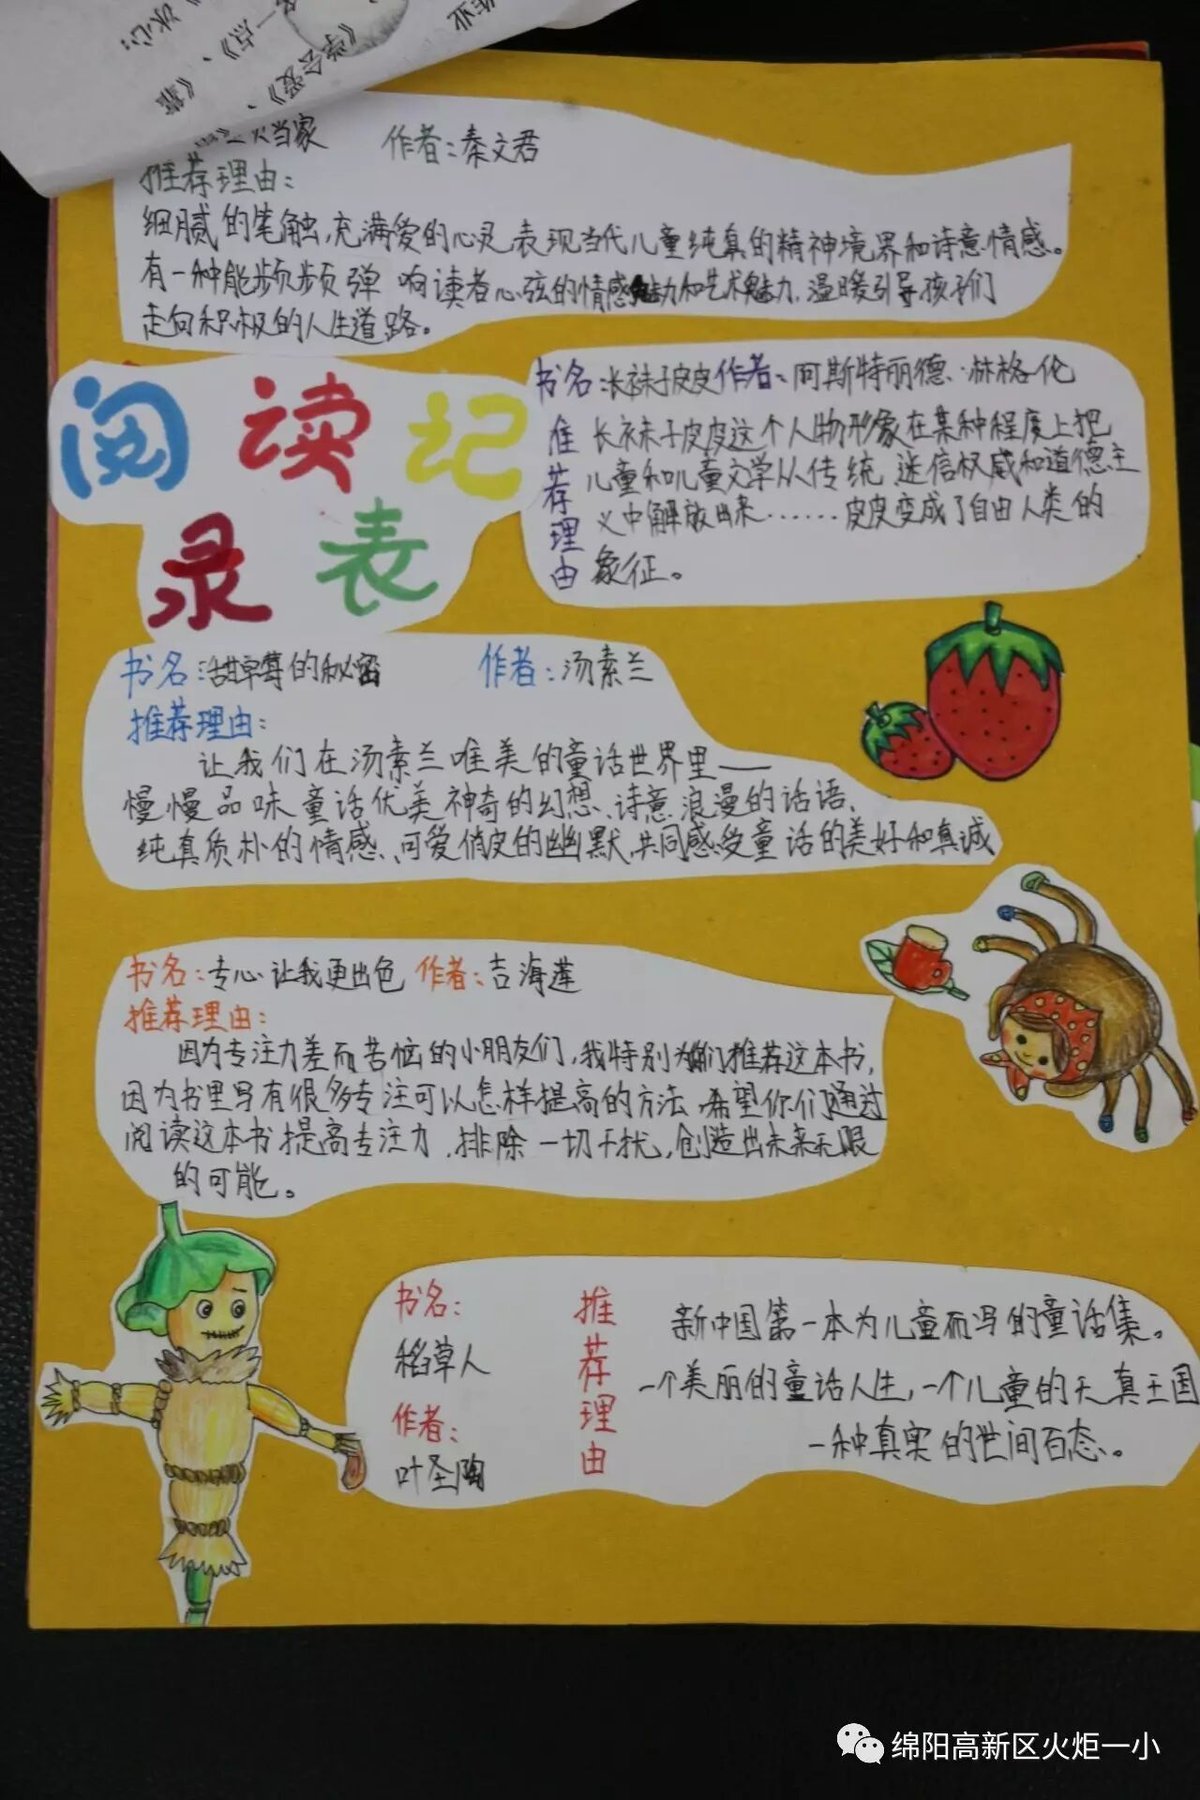 作业
《学会爱》、
一点》、《靠
冰心:
天当家 作者:秦文君
推荐理由:
细腻的笔触,充满爱的心灵,表现当代儿童纯真的精神境界和诗意情感。
有一种能频频弹响读者心弦的情感魅力和艺术魅力,温暖引导孩子们
走向积极的人生道路。
阅读记
录表
书名:长袜子皮皮 作者:阿斯特丽德·林格伦
推荐理由
长袜子皮皮这个人物形象在某种程度上把
儿童和儿童文学从传统、迷信权威和道德主
义中解放出来……皮皮变成了自由人类的
象征。
书名:甜草莓的秘密 作者:汤素兰
推荐理由:
让我们在汤素兰唯美的童话世界里——
慢慢品味童话优美神奇的幻想、诗意浪漫的话语、
纯真质朴的情感、可爱俏皮的幽默,共同感受童话的美好和真诚
书名:专心让我更出色 作者:吉海莲
推荐理由:
因为专注力差而苦恼的小朋友们,我特别为你们推荐这本书,
因为书里写有很多专注可以怎样提高的方法,希望你们通过
阅读这本书提高专注力,排除一切干扰,创造出未来无限
的可能。
书名:
稻草人
作者:
叶圣陶
推荐理由
新中国第一本为儿童而写的童话集。
一个美丽的童话人生,一个儿童的天真王国
一种真实的世间百态。
绵阳高新区火炬一小